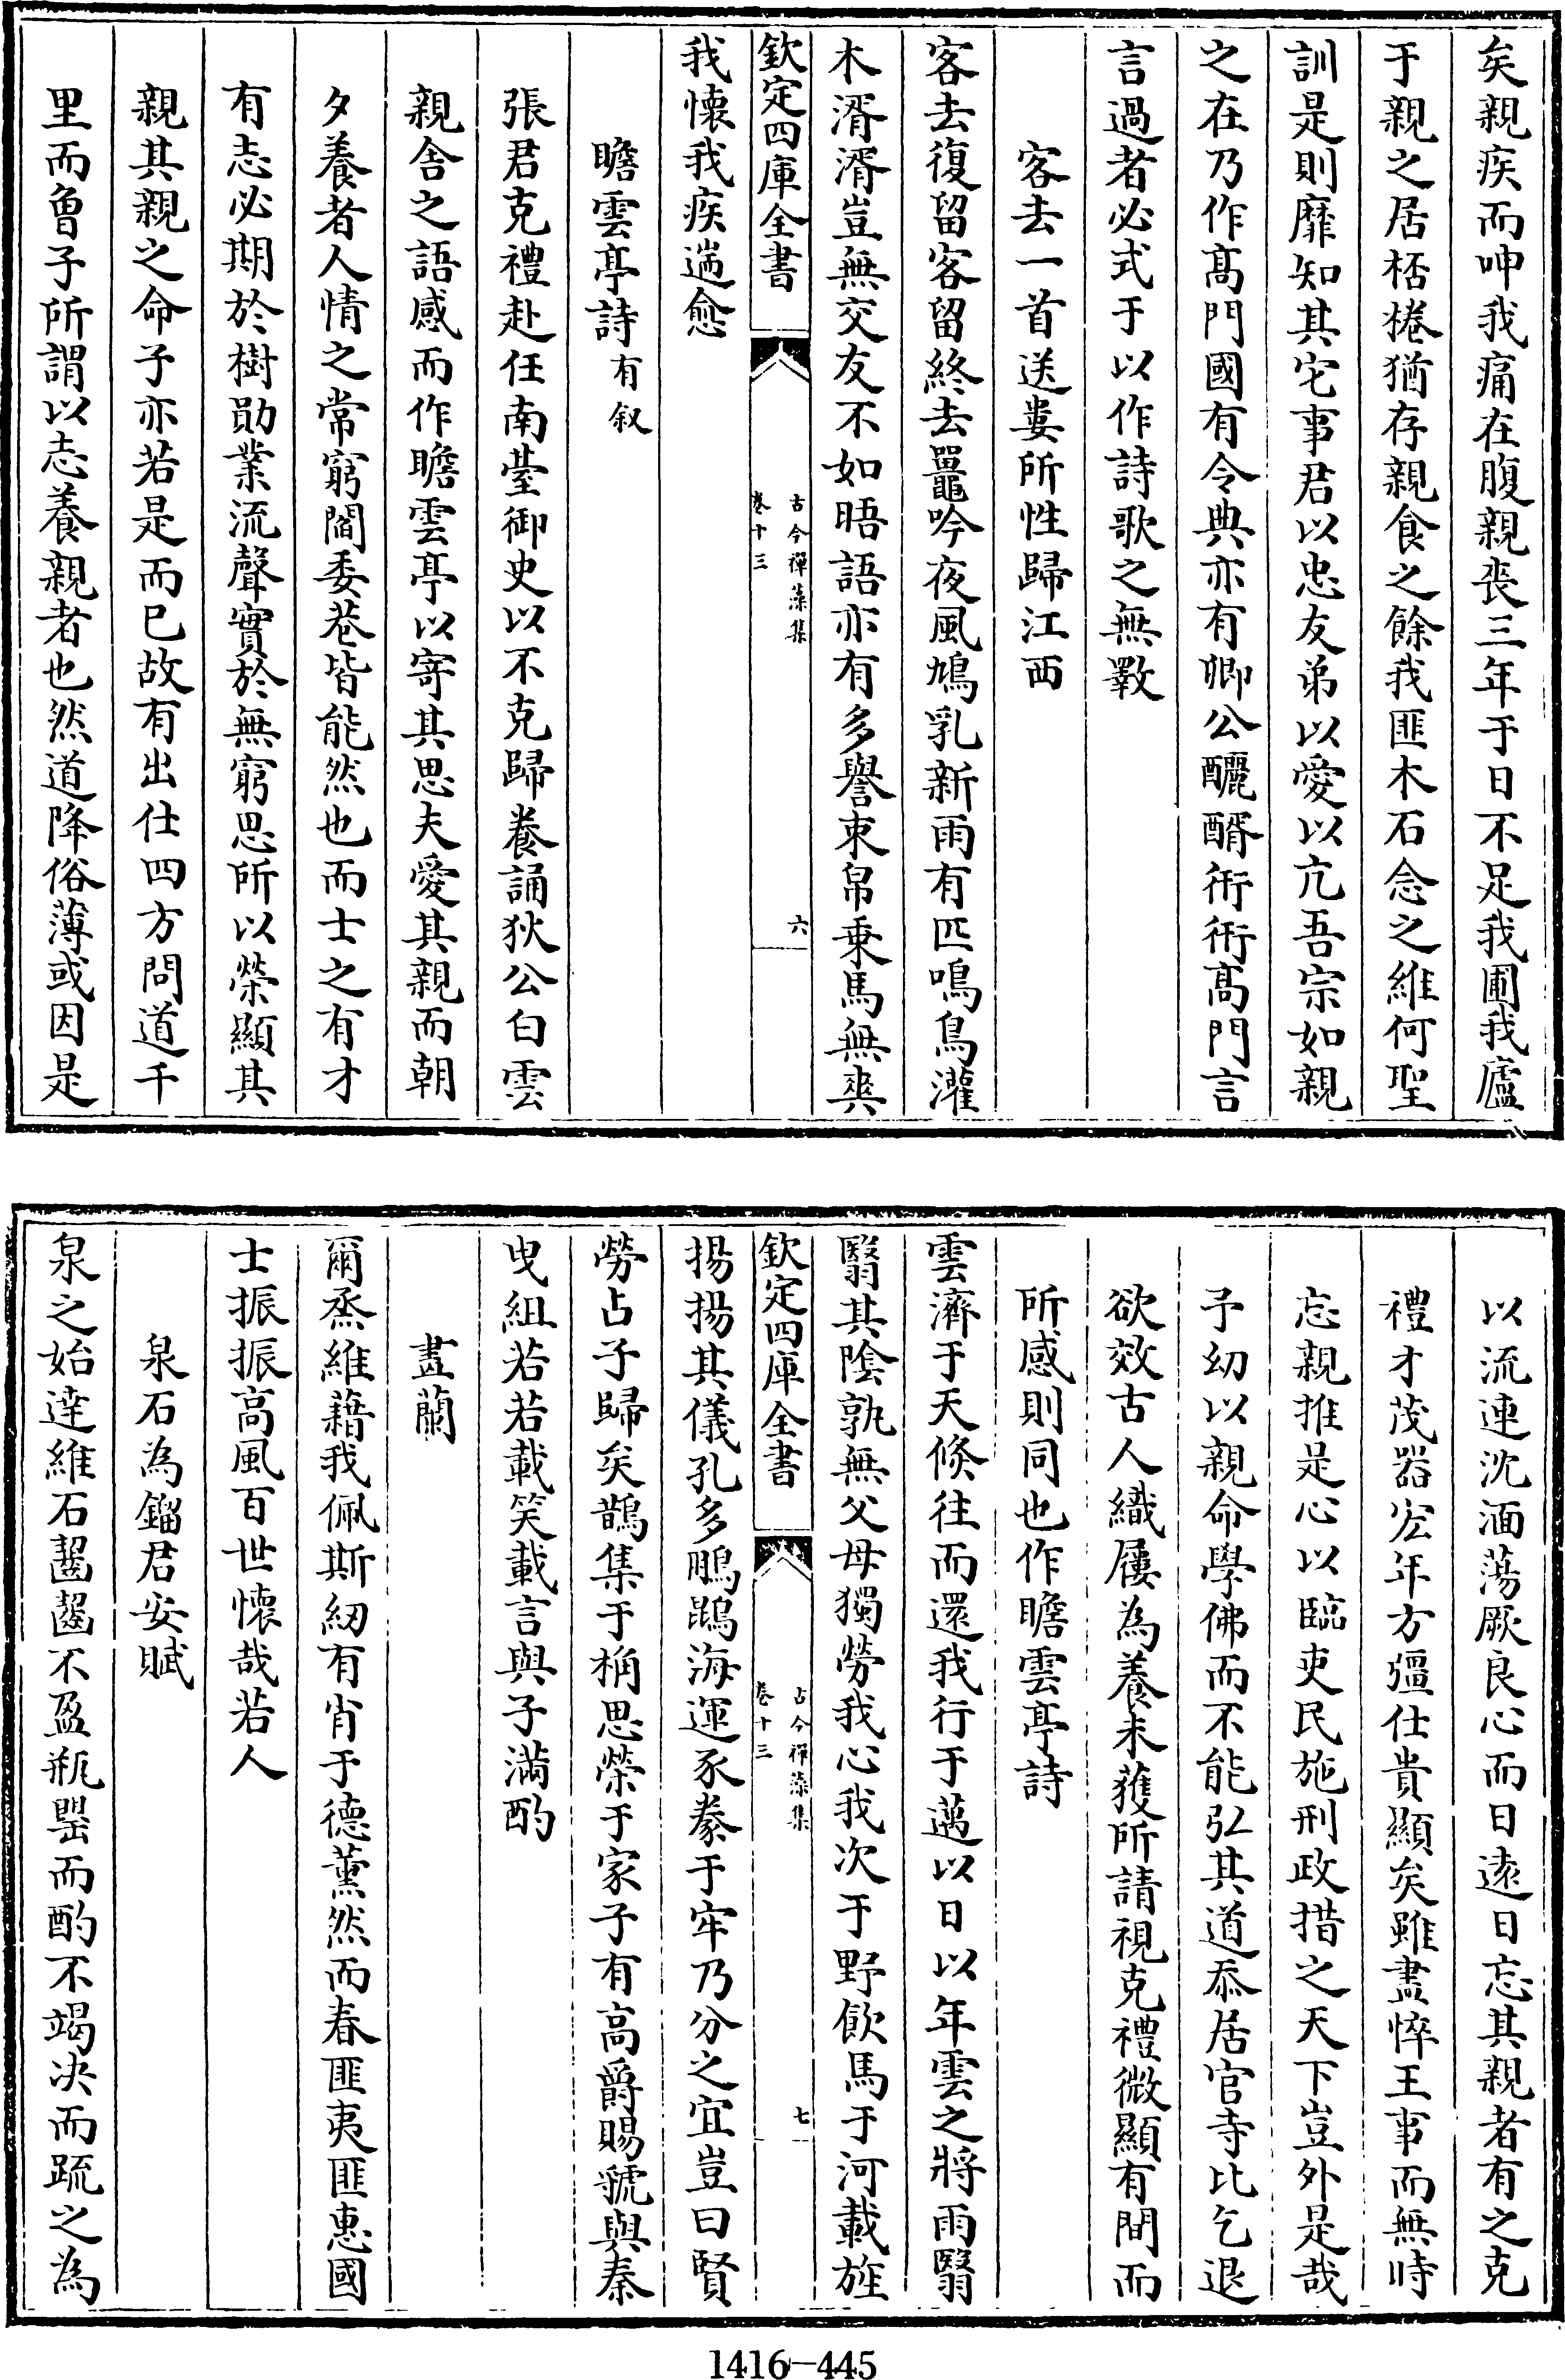 矣親疾而呻我痛在腹親喪三年于日不足我圃我廬
于親之居桮棬猶存親食之餘我匪木石念之維何聖
訓是則靡知其宅事君以忠友弟以愛以亢吾宗如親
之在乃作髙門國有令典亦有卿公釃醑衎衎髙門言
言過者必式于以作詩歌之無斁
客去一首送婁所性歸江西
客去復留客留終去鼉吟夜風鳩乳新雨有匹鳴鳥灌
木湑湑豈無交友不如晤語亦有多譽束帛乗馬無爽
欽定四庫全書
古今禪藻集
卷十三
六
我懷我疾遄愈
瞻雲亭詩有叙
張君克禮赴任南䑓御史以不克歸養誦狄公白雲
親舎之語感而作瞻雲亭以寄其思夫愛其親而朝
夕養者人情之常窮閻委巷皆能然也而士之有才
有志必期於樹勛業流聲實於無窮思所以榮顯其
親其親之命子亦若是而已故有出仕四方問道千
里而魯子所謂以志養親者也然道降俗薄或因是
以流連沈湎蕩厥良心而日逺日忘其親者有之克
禮才茂器宏年方彊仕貴顯矣雖盡悴王事而無時
忘親推是心以臨吏民施刑政措之天下豈外是哉
予幼以親命學佛而不能弘其道忝居官寺比乞退
欲效古人織屨為養未獲所請視克禮微顯有間而
所感則同也作瞻雲亭詩
雲濟于天倏往而還我行于邁以日以年雲之將雨翳
翳其隂孰無父母獨勞我心我次于野飲馬于河載旌
欽定四庫全書
古今禪藻集
卷十三
七
揚揚其儀孔多鵬鶤海運豕豢于牢乃分之宜豈曰賢
勞占子歸矣鵲集于桷思榮于家子有高爵賜號與秦
曳組若若載笑載言與子滿酌
畫蘭
爾烝維藉我佩斯紉有肖于德薫然而春匪夷匪惠國
士振振高風百世懷哉若人
泉石為鎦君安賦
泉之始逹維石齾齾不盈瓶罌而酌不竭决而疏之為
1416-445